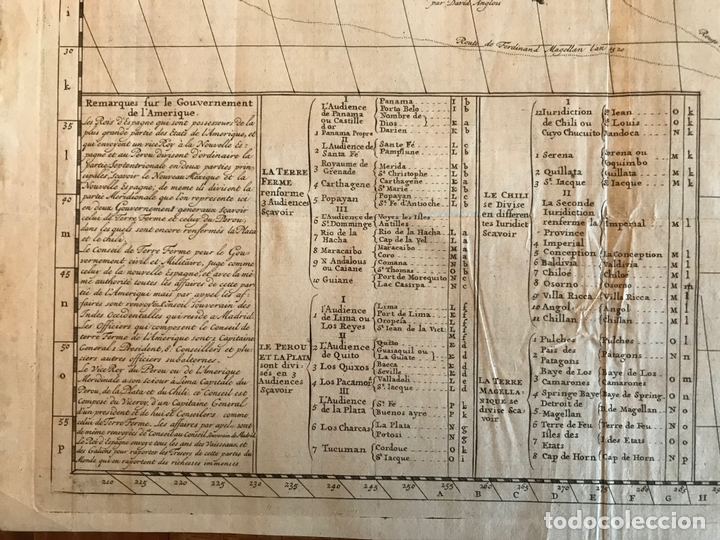 par David Anglois
Route de Ferdinand Magellan l'an 1520
Route
i
30
k
35
l
40
m
45
n
50
o
55
p
Remarques sur le Gouvernement
de l'Amerique.
Les Rois d'Espagne qui sont possesseurs de la
plus grande partie des Etats de l'Amerique, et
qui envoyent un vice Roy à la Nouvelle Es-
pagne et au Perou divisent d'ordinaire la
Partie Septentrionale en deux parties prin-
cipales, sçavoir le Nouveau Mexique et la
Nouvelle Espagne; de meme ils divisent la
partie Meridionale que l'on represente ici
en deux Gouvernement generaux sçavoir
celui de Terre Ferme et celuy du Perou,
dans lesquels sont encore renfermés la Plata
et le chili.
Le Conseil de Terre Ferme pour le Gou-
vernement civil et Militaire, juge comme
celui de la nouvelle Espagne, et avec la mê-
me authorité toutes les affaires de cette par-
tie de l'Amerique mais par appel les af-
faires sont renvoyés au Conseil Souverain des
Indes Occidentalles qui reside a Madrid.
les Officiers qui composent le Conseil de
terre Ferme de l'Amerique sont 5 Capitaine
General, 1 President, 8 Conseillers et plu-
siers autres officiers subalternes.
Le Vice Roy du Perou ou de l'Amerique
Meridionale a son sejour a Lima Capitale du
Perou, de la Plata et du Chili, ce Conseil est
Composé du Viceroy, d'un Capitaine General
d'un president et de huit Conseillers comme
celui de Terre Ferme. Les affaires par apel sont
de même renvoyées au Conseil Souverain de Madrid.
Le Roi d'Espagne envoye tous les ans des Vaisseaux et
des Galions pour raporter les Tresors de cette partie du
Monde qui en raportent des richesses immenses
LA TERRE
FERME
renferme
3 Audiences
Sçavoir
I
1 L'Audience
de Panama
ou Castille
d'or
1 Panama Propre
Panama I b
Porto Belo I b
Nombre de
Dios K a
Darien K b
II
2 L'Audience de
Santa Fé
Santa Fé L c
Pampilune L c
3 Royaume de
Grenade
Merida M b
St. Christophe L b
4 Carthagene
Carthagene K a
Ste. Marie K b
5 Popayan
Popayan L c
St. Fe d'Antioche L b
III
6 L'Audience de
St. Domingo
Voyez les Isles
Antilles
7 Rio de la
Hacha
Rio de la Hacha L a
Cap de la Vel L a
8 Maracaibo
Maracaibo M a
Coro M a
9 N Andalous
ou Caiane
Comana N b
St. Thomas O b
10 Guiane
Port de Morequito N c
Lac Cassipa N c
LE PEROU
ET LA PLATA
sont divi-
sés en 3
Audiences
Sçavoir
I
1 l'Audience
de Lima ou
Los Reyes
Lima L f
Port de Lima K f
Oropesa L f
St. Iean de la Vict. L f
II
2 L'Audience
de Quito
Quito K d
Guaiaquil ou
La Guiate K d
3 Los Quixos
Baeca K d
Seville K d
4 Los Pacamor
Valladoli K e
St. Iacque L e
III
5 L'Audience
de la Plata
St. Fé P k
Buenos ayre P k
6 Los Charcas
La Plata N g
Potosi N g
7 Tucuman
Cordoue O k
St. Iacque O i
LE CHILI
se Divise
en differen
tes Iuridict
Scavoir
I
Iuridiction
de Chili ou
Cuyo Chucuito
St. Jean O k
St. Louis O k
Mandoca N k
1 Serena
Serena ou
Coquimbo M k
2 Quillata
Quillata M k
3 St. Iacque
St. Iacque M k
II
La Seconde
Iuridiction
renferme la
Province
4 Imperial
Imperial M l
5 Conception
La Conception M l
6 Baldivia
Baldivia M l
7 Chiloé
Chiloé M l
8 Osorno
Osorno M m
9 Villa Ricca
Villa Ricca M l
10 Angol
Angol M l
11 Chillan
Chillan M l
LA TERRE
MAGELLA-
NIQUE se
divise Sca-
voir
1 Pulches
Pulches O l
2 Païs des
Patagons
Patagons N n
3 Baye de Los
Camarones
Baye de Los
Camarones O m
4 Springe Baye
Springe Baye O n
5 Detroit de
Magellan
D. de Magellan N o
6 Terre de Feu
Terre de Feu N o
7 Isles des
Etats
I. des Etats O o
8 Cap de Horn
Cap de Horn N p
210 215 220 225 230 235 240 245 250 255 260 265 270 275 280 285 290
A B C D E F G H
todocoleccion.net